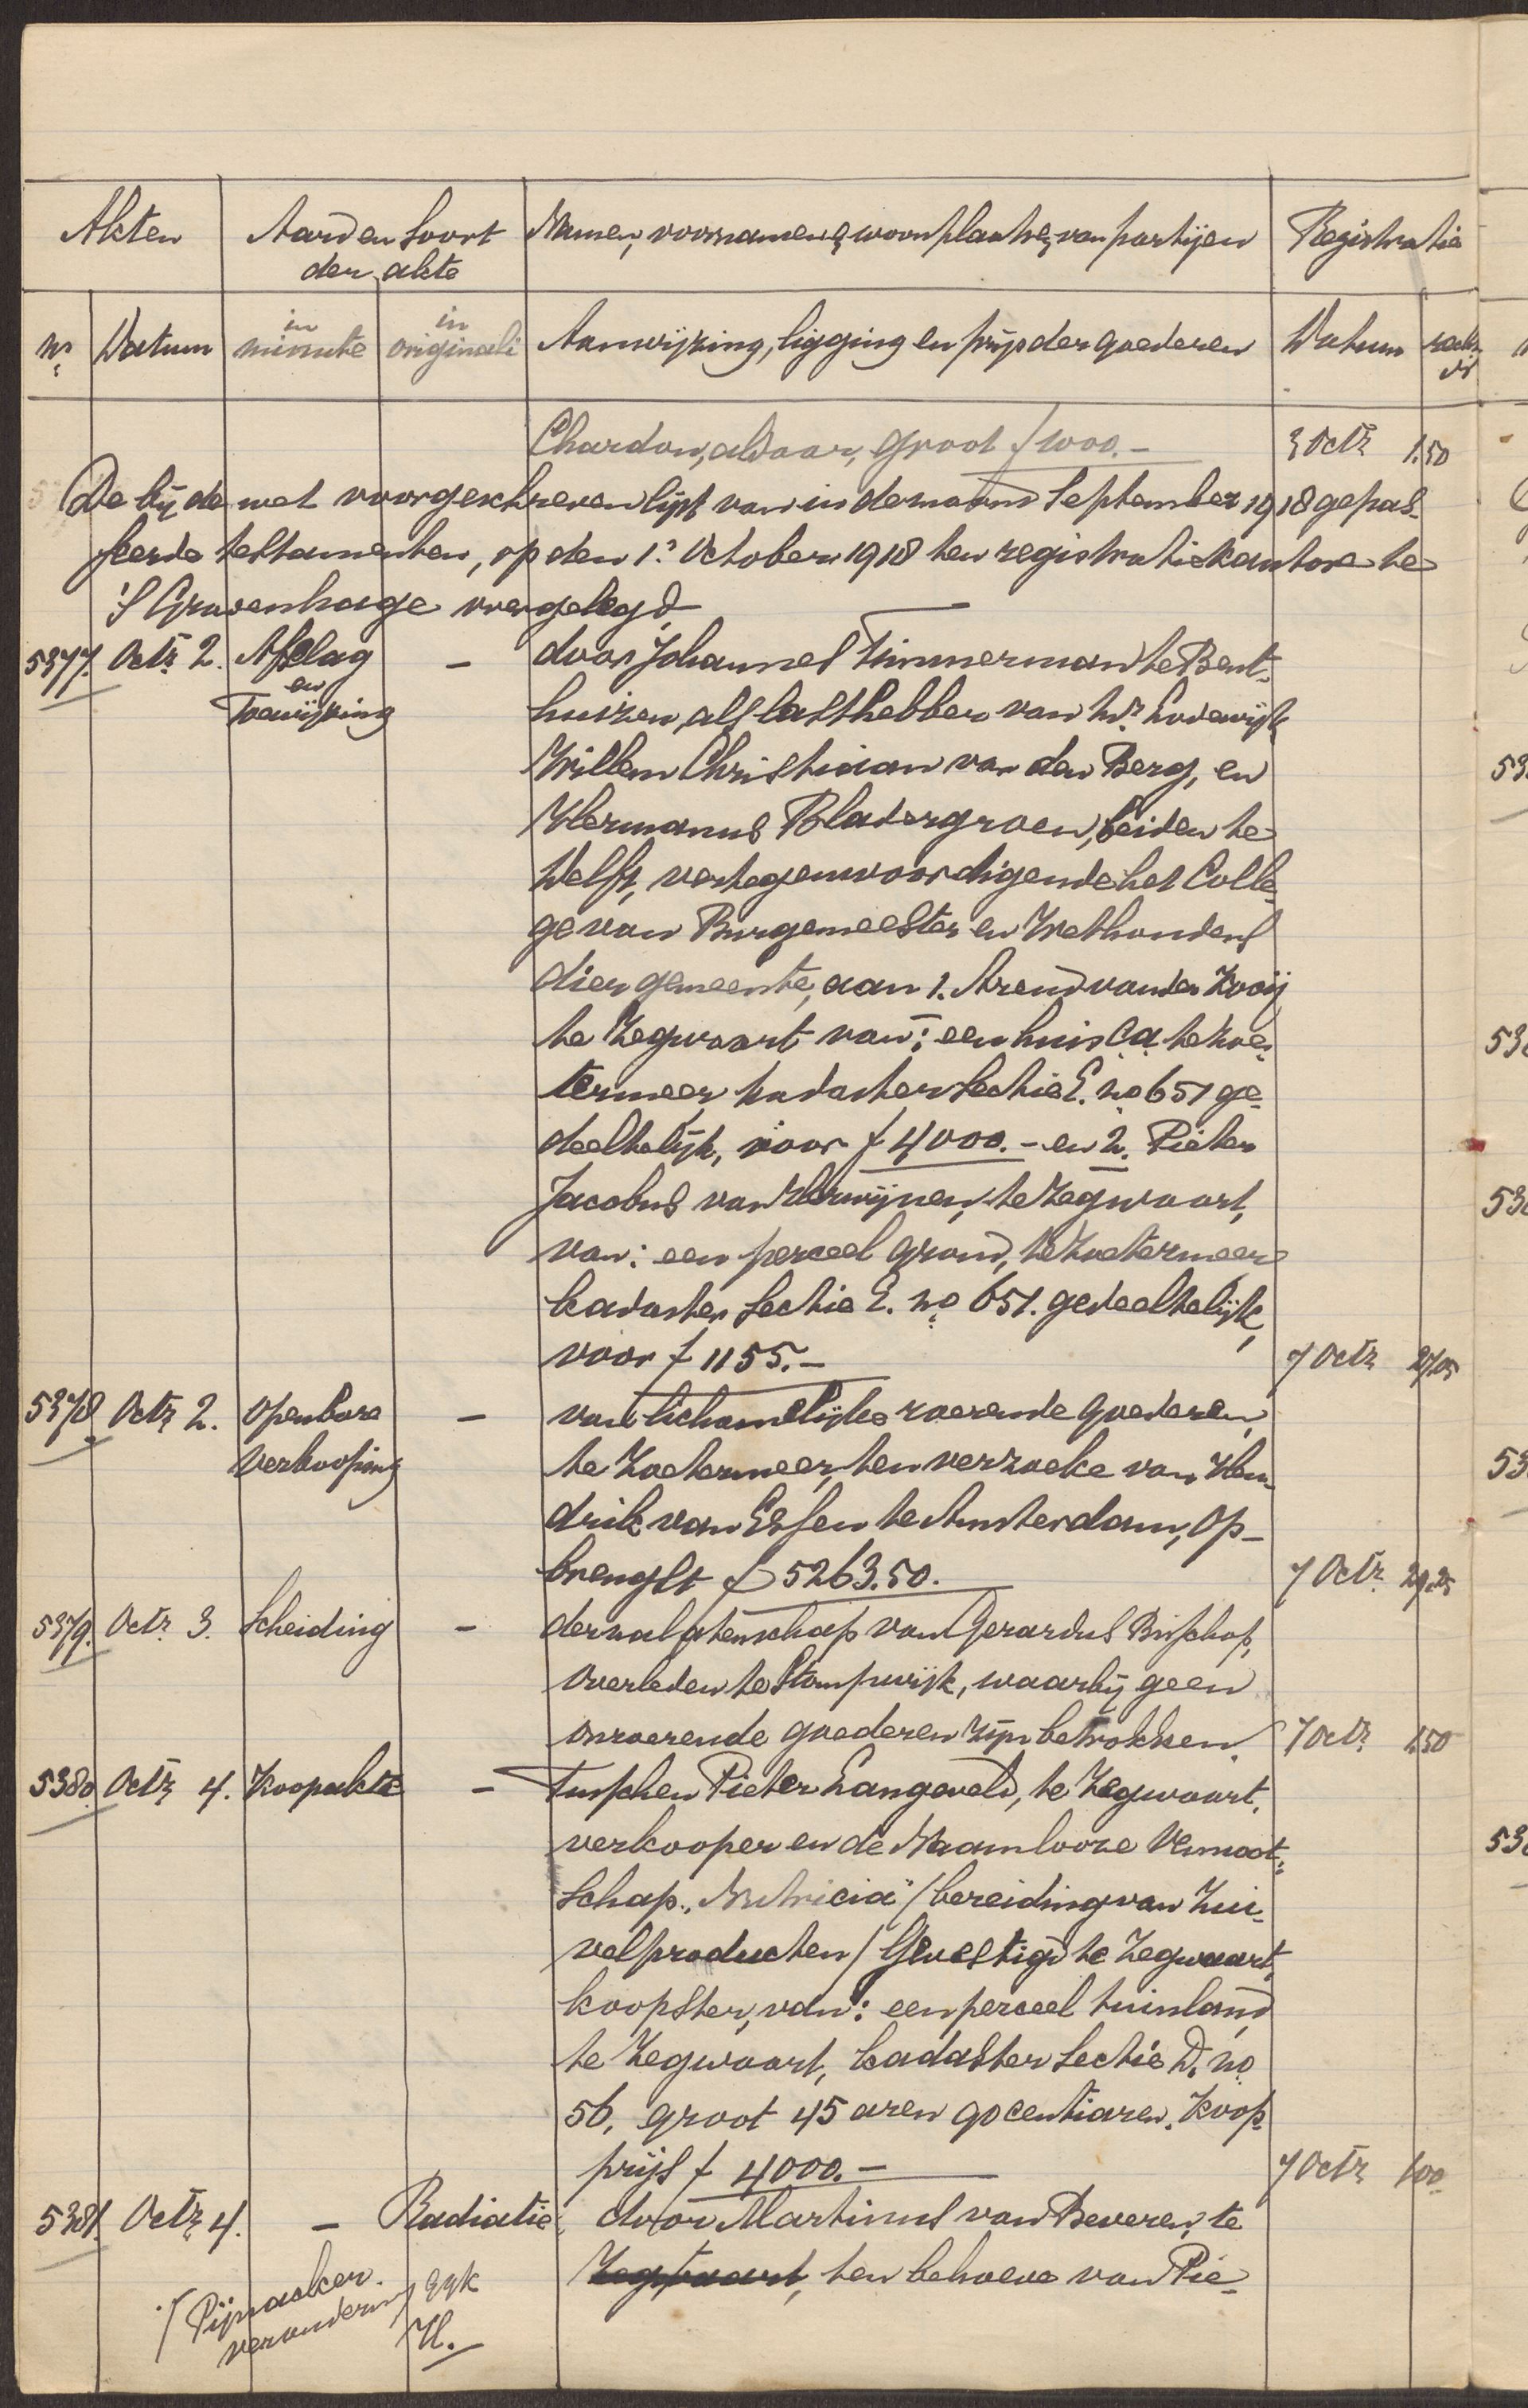 Akten Aard en Soort Namen, voornamen & woonplaatsen van partijen Registratie
der akte
No Datum in minute in originali Aanwijzing, ligging en prijs der goederen Datum
Chardon, aldaar, groot f 1000.- 3 Octr 1.50
De bij de wet voorgeschreven lijst van in de maand September 1918 gepas-
seerde testamenten, op den 1e October 1918 ten registratiekantore te
'S Gravenhage voorgelegd
5377. Octr 2. Afslag - door Johannes Timmerman te Bent-
en huizen, als lasthebber van Mr. Lodewijk
Toewijzing
Willem Christiaan van den Berg, en
Hermanus Bladergroen, beiden te
Delft, vertegenwoordigende het Colle-
ge van Burgemeester en Wethouders
dier gemeente, aan 1. Arend van der Kooij
te Zegwaart van: een huis c.a. te Zoe-
termeer kadaster Sectie E. no 651 ge-
deeltelijk, voor f 4000.- en 2. Pieter
Jacobus van Herwijnen, te Zegwaart,
van: een perceel grond, te Zoetermeer
kadaster Sectie E. no 651. gedeeltelijk,
voor f 1155.- 7 Octr
5378 Octr 2. Openbare - van lichamelijke roerende goederen,
verkooping te Zoetermeer, ten verzoeke van Hen-
drik van Essen te Amsterdam, op-
brengst f 5263.50. 7 Octr 29.25
5379. Octr. 3. Scheiding - der nalatenschap van Gerardus Bisschop,
overleden te Stompwijk, waarbij geen
onroerende goederen zijn betrokken. 7 Octr 1.50
5380. Octr 4. Koopakte - Tusschen Pieter Langeveld, te Zegwaart,
verkooper en de Naamlooze Vennoot-
schap "Nutricia" (bereiding van Zui-
velproducten) Gevestigd te Zegwaart,
koopster, van: een perceel tuinland
te Zegwaart, kadaster Sectie D. no
56, groot 45 aren 90 centiaren. Koop-
prijs f 4000.- 7 Octr 100
5381. Octr 4. - Radiatie door Martinus van Beveren, te
Zegwaart, ten behoeve van Pie-
/ Pijnacker.
verandering
H.